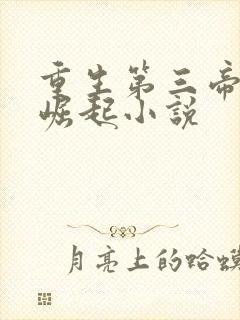 重生第三帝
崛起小説
月亮上的蛤蟆